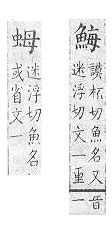 謨杯切魚名又音
迷浮切文一重一
迷浮切魚名
或省文一